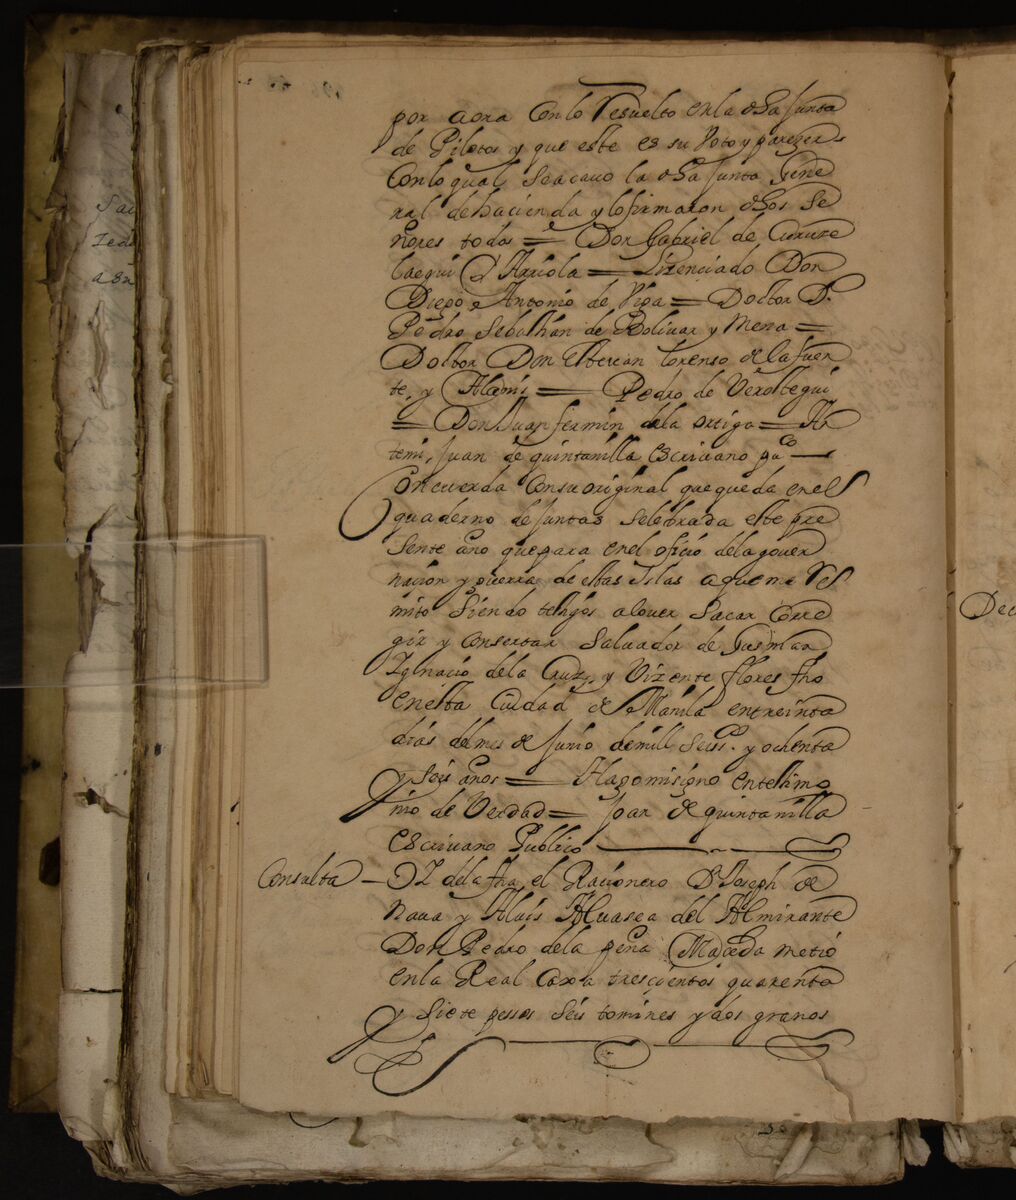 por aora Con lo Resuelto en la dha Junta
de Pilotos y que este es su Voto y parezer
Con lo qual se acavo la dha Junta Gene
ral de hacienda y lo firmaron dhos Se
ñores todos = Don Gabriel de Curuze
laegui y Arriola = Lizenciado Don
Diego Antonio de Viga = Doctor D.
Pedro Sebastian de Bolivar y Mena =
Doctor Don Estevan Lorenso de la fuen
te, y Alanis = Pedro de Verastegui
= Don Juan fermin de la ortiga = An
temi, Juan de quintanilla escrivano puco
Concuerda Con su original que queda en el
quaderno de Juntas Selebrada este pre
sente año que para en el oficio de la gover
nazion y guerra de estas Islas a que me Re
mito Siendo testigos a lo ver Sacar Corre
gir y Consertar Salvador de Gusman
Ignacio de la Cruz, y Vizente flores fho
en esta Ciudad de Manila en treinta
dias del mes de Junio de mill Seiss.os y ochenta
y Seis años = Hago mi signo en testimo
nio de Verdad = Joan de quintanilla
escrivano Publico
Consulta - de la fha el Racionero Dn Joseph de
Nava y Aluis Alvasea del Almirante
Don Pedro de la peña Maceda metio
en la Real Caxa trescientos quarenta
y Siete pessos Seis tomines y dos granos